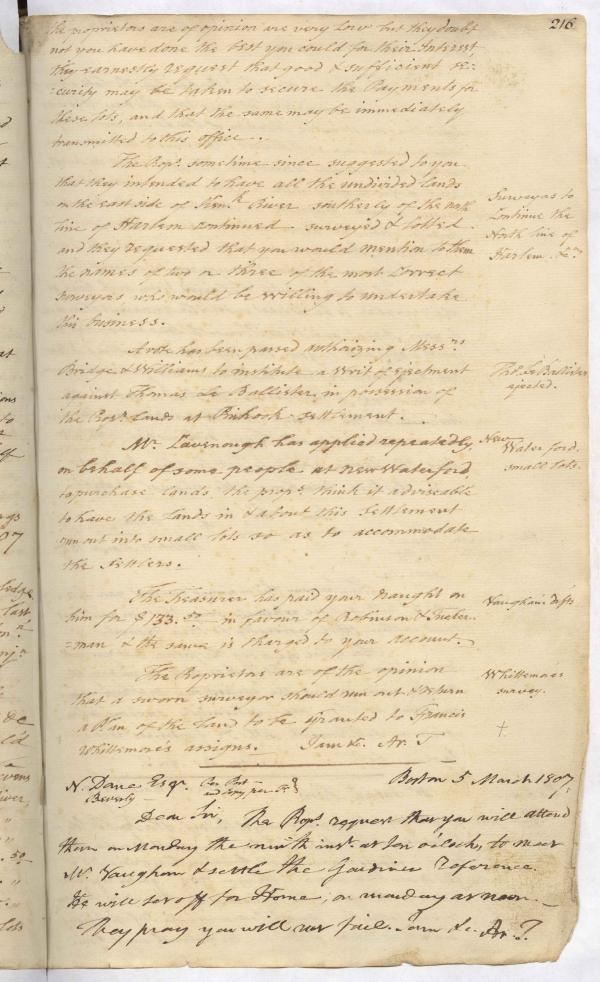 216
the proprietors are of opinion are very low but they doubt
not you have done the best you could for their Interest
they earnestly request that good & sufficient se=
=curity may be taken to secure the Payments for
these lots, and that the same may be immediately
transmitted to this office.
The Prop.rs sometime since suggested to you
that they intended to have all the undivided lands
on the east side of Kenn.k River southerly of the north
line of Harlem continued surveyed & lotted
and they requested that you would mention to them
the names of two or three of the most correct
surveyors who would be willing to undertake
this business.
Surveyors to
Continue the
North line of
Harlem &c.
A vote has been passed authorizing Mess.rs
Bridge & Williams to institute a Writ of ejectment
against Thomas Le Ballister in possession of
the Prop.rs lands at Pinhook settlement.
Tho.s Le Ballister
ejected.
Mr. Cavenough has applied repeatedly,
on behalf of some people at New Waterford,
to purchase lands, the prop.rs think it adviseable
to have the lands in & about this settlement
run out into small lots so as to accommodate
the settlers.
New
Waterford.
small lots.
The Treasurer has paid your draught on
him for $133.50 in favour of Robinson &
=man & the same is charged to your account.
Vaughan's dfts
The Proprietors are of the opinion
that a sworn surveyor should run out & return
a Plan of the Land to be granted to Francis
Whittemore's assigns. I am &c. Ar. T
Whittemore's
survey.
N. Dane Esqr. Per Post
Beverly
Boston 5 March 1807.
Dear Sir, The Prop.rs request that you will attend
them on Monday the ninth inst. at Ten o'clock, to meet
Mr. Vaughan & settle the Gardiner reference.
He will set off for Home, on monday at noon.
They pray you will not fail. I am &c. Ar. T.